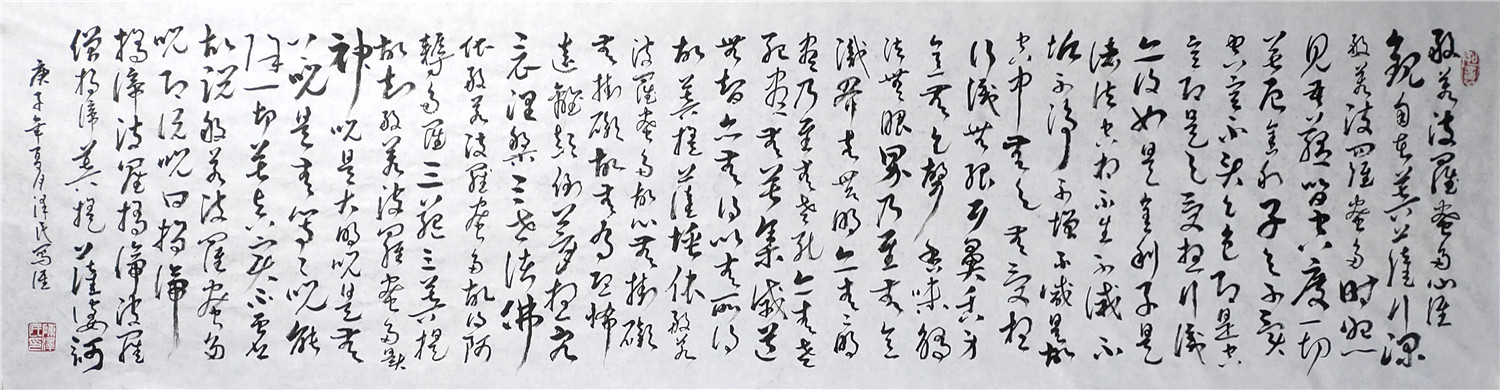 般若波羅蜜多心經
觀自在菩薩行深
般若波羅蜜多時照
見五蘊皆空度一切
苦厄舍利子色不異
空空不異色色即是空
空即是色受想行識
亦復如是舍利子是
諸法空相不生不滅不
垢不淨不增不減是故
空中無色無受想
行識無眼耳鼻舌身
意無色聲香味觸
法無眼界乃至無意
識界無無明亦無無明
盡乃至無老死亦無老
死盡無苦集滅道
無智亦無得以無所得
故菩提薩埵依般若
波羅蜜多故心無掛礙
無掛礙故無有恐怖
遠離顛倒夢想究
竟涅槃三世諸佛
依般若波羅蜜多故得阿
耨多羅三藐三菩提
故知般若波羅蜜多是大
神咒是大明咒是無
上咒是無等等咒能
除一切苦真實不虛
故說般若波羅蜜多
咒即說咒曰揭諦
揭諦波羅揭諦波羅
僧揭諦菩提薩婆訶
庚子年夏月澤民寫經